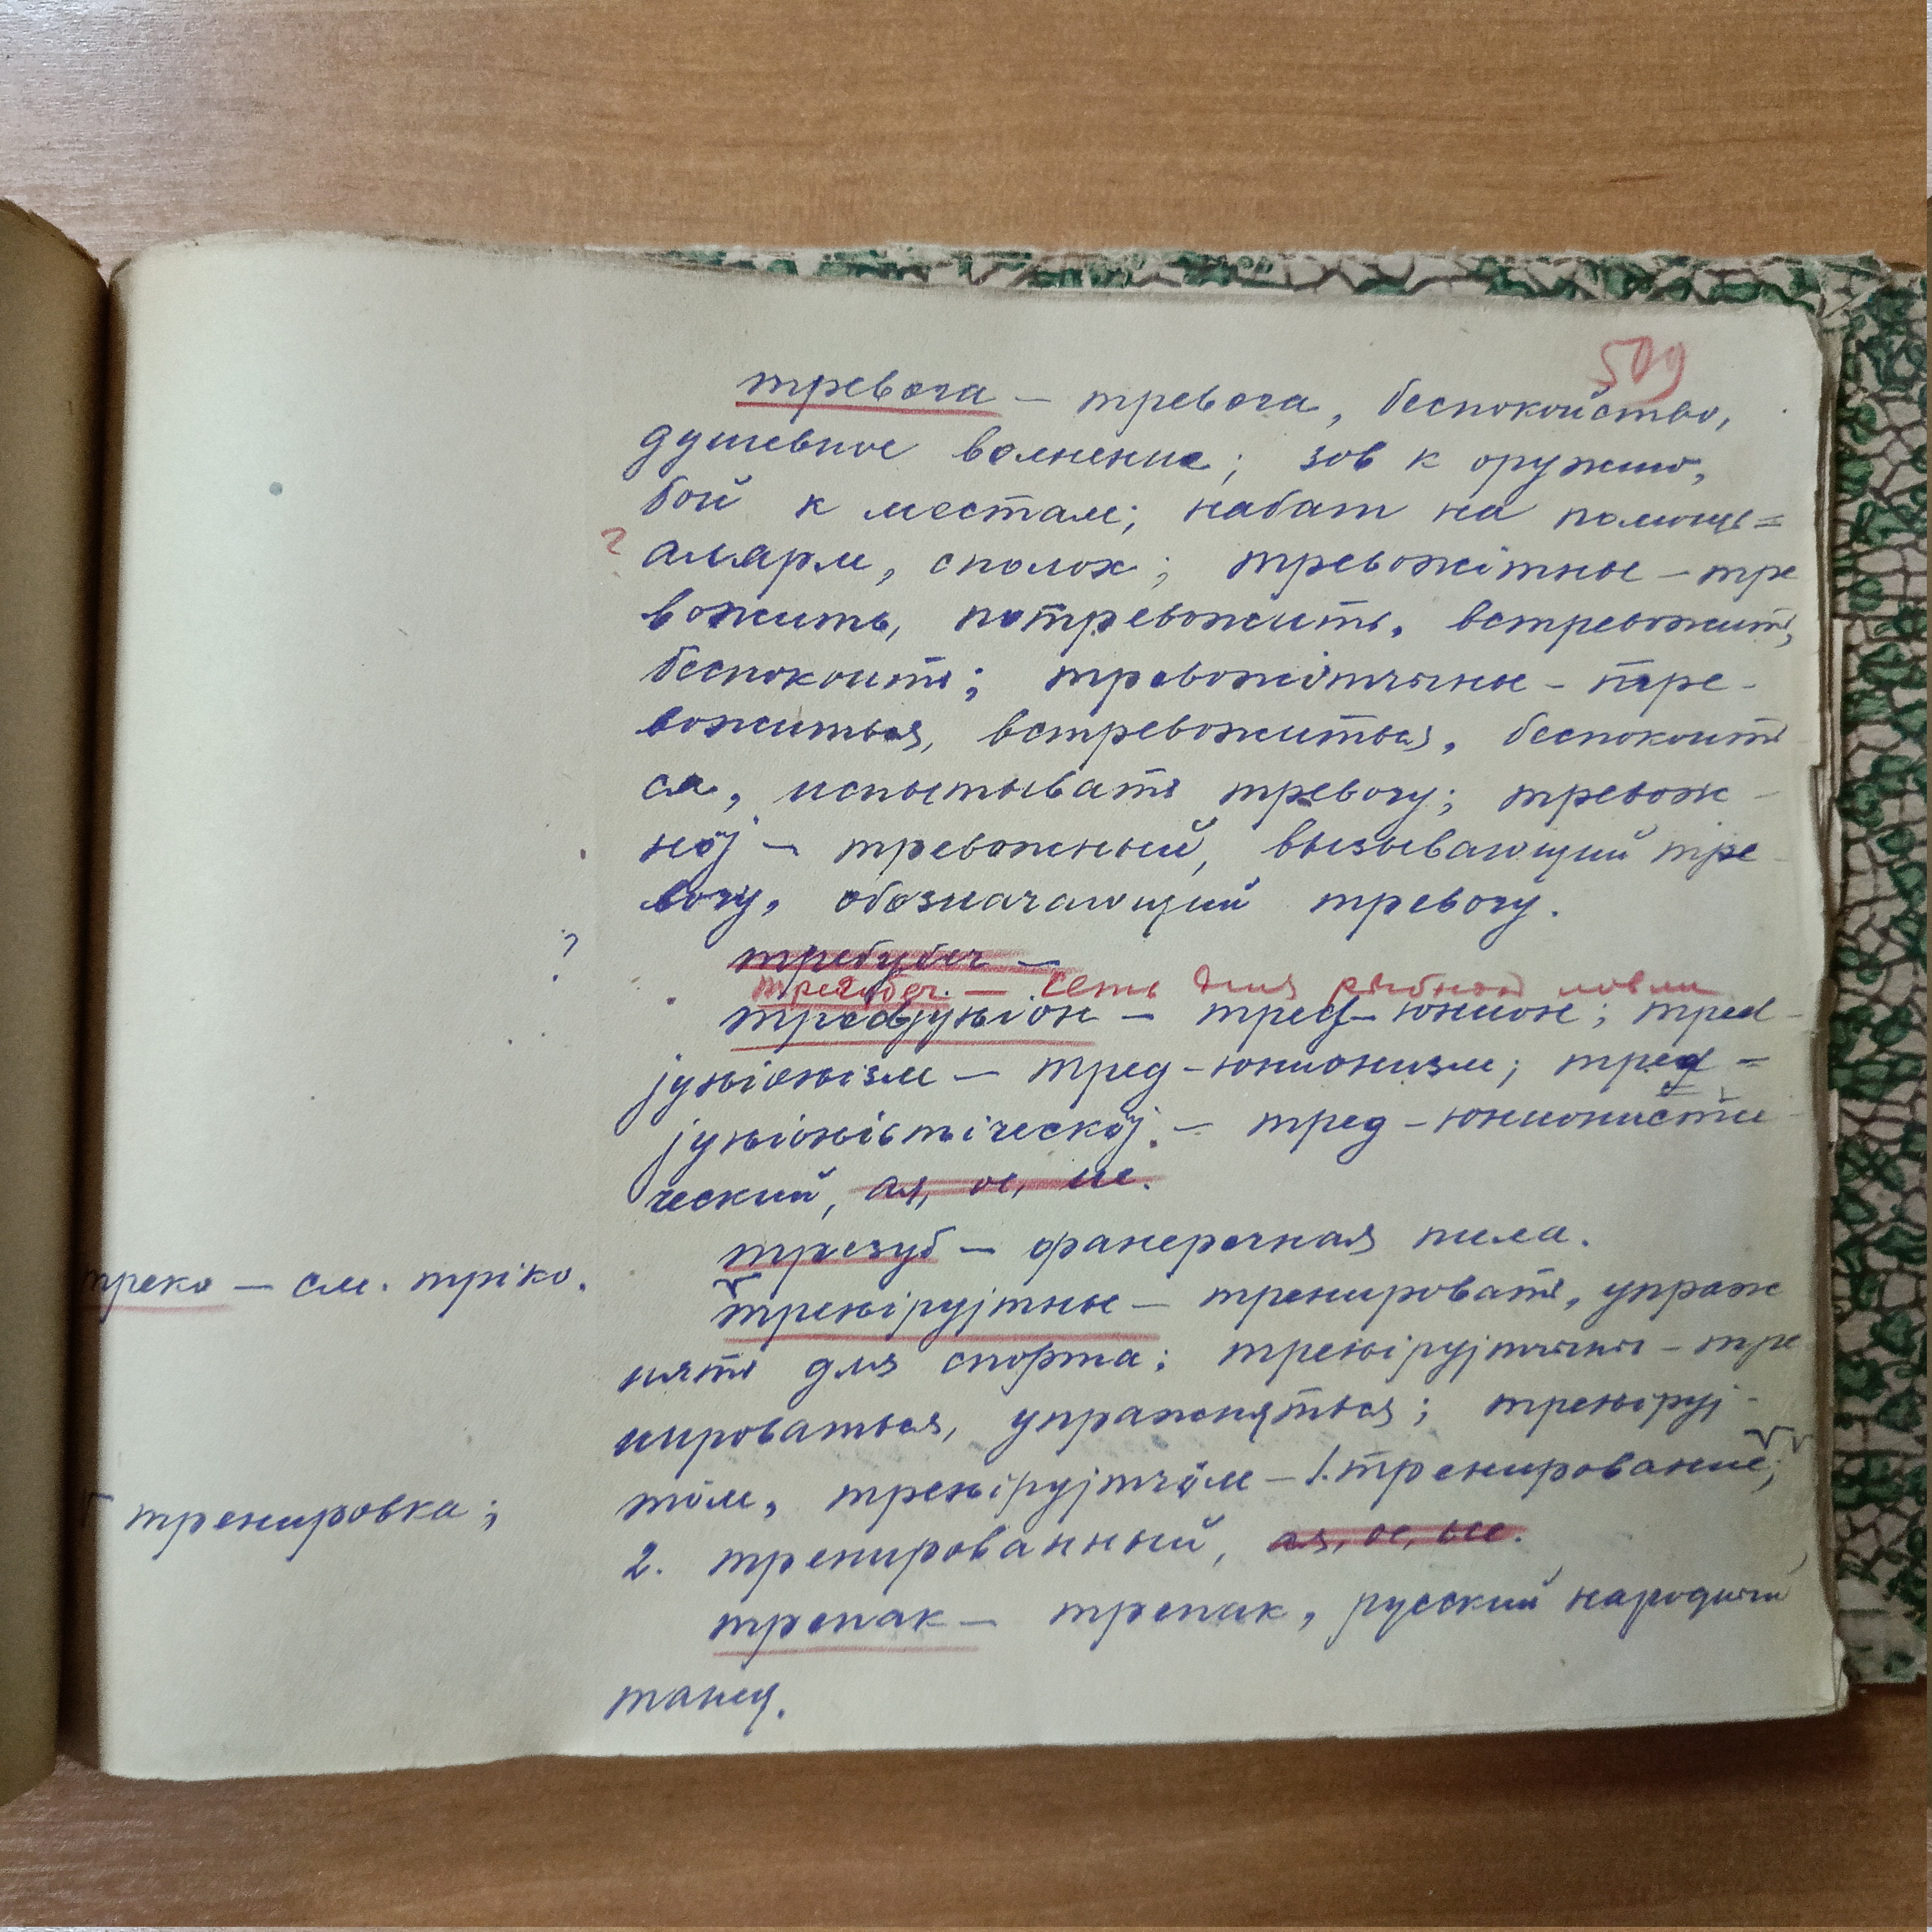 509
тревога — тревога, беспокойство,
душевное волнение; зов к оружию,
бой к местам; набат на помощь=
? алярм, сполох; тревожітны — тре
вожить, потревожить, встревожить,
беспокоить; тревожітчыны — тре-
вожиться, встревожиться, беспокоить
ся, испытывать тревогу; тревож-
нӧј — тревожный, вызывающий тре-
вогу, обозначающий тревогу.
? требубеч —
— сеть для рыбной ловли
тредјуньіон — тред-юнион; тред-
јуньіоньізм — тред-юнионизм; тред=
јуньіоньістіческӧј — тред-юнионисти-
ческий, ая, ое, ие.
трезуб — фанерочная пила.
треко — см. тріко.
треньірујтны — тренировать, упраж
нять для спорта; треньірујтчыны — тре
нироваться, упражняться; треньіруј-
тӧм, треньірујтчӧм — 1. тренирование;
тренировка;
2. тренированный, ая, ое, ые.
трепак — трепак, русский народный
танец.